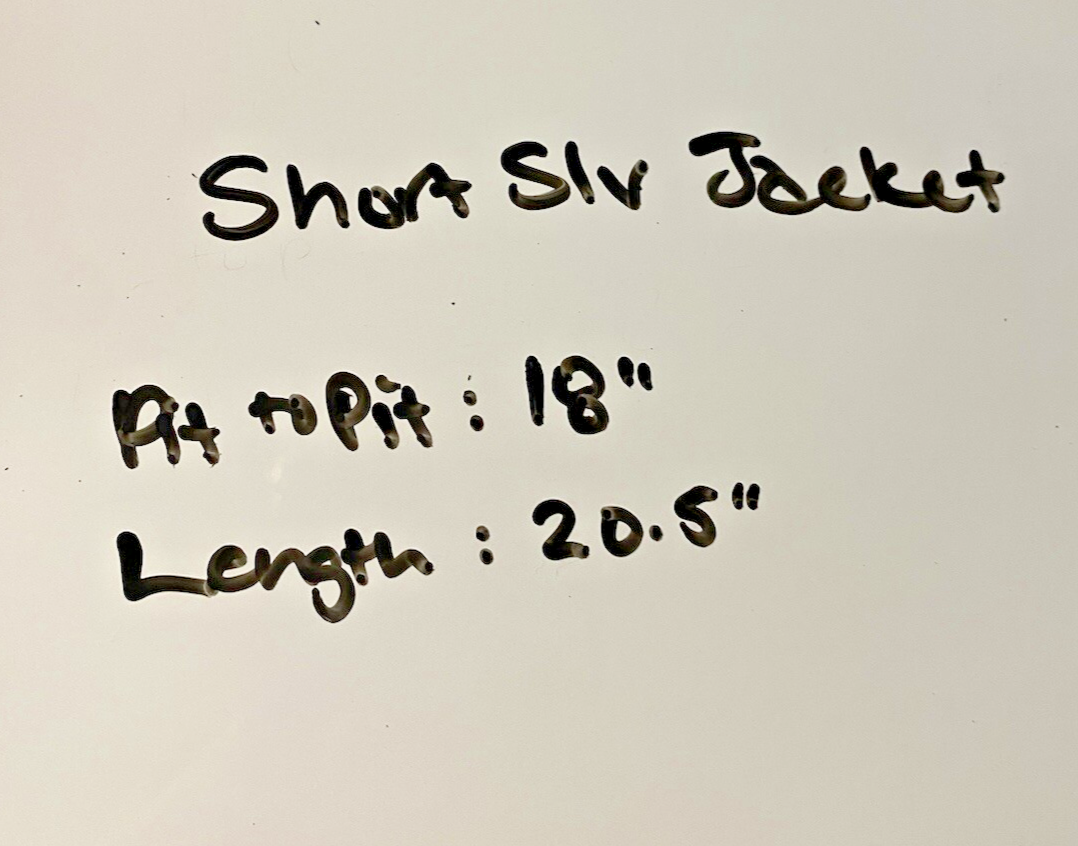 Short Slv Jacket
Pit to Pit : 18"
Length : 20.5"